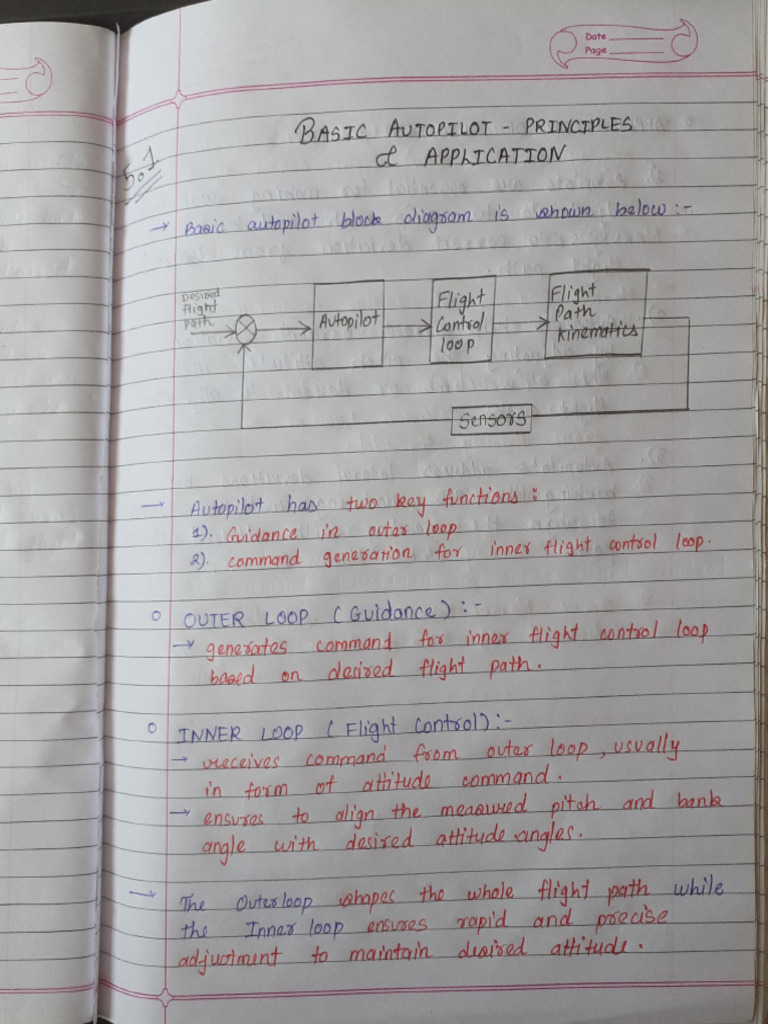 Date
Page
BASIC AUTOPILOT - PRINCIPLES
& APPLICATION
5.1
→ Basic autopilot block diagram is shown below :-
Desired
flight
path
Autopilot
Flight
Control
loop
Flight
Path
Kinematics
Sensors
→ Autopilot has two key functions :
1). Guidance in outer loop
2). command generation for inner flight control loop.
○ OUTER LOOP (Guidance) :-
→ generates command for inner flight control loop
based on desired flight path.
○ INNER LOOP (Flight Control) :-
→ receives command from outer loop, usually
in form of attitude command.
→ ensures to align the measured pitch and bank
angle with desired attitude angles.
→ The Outerloop shapes the whole flight path while
the Inner loop ensures rapid and precise
adjustment to maintain desired attitude.